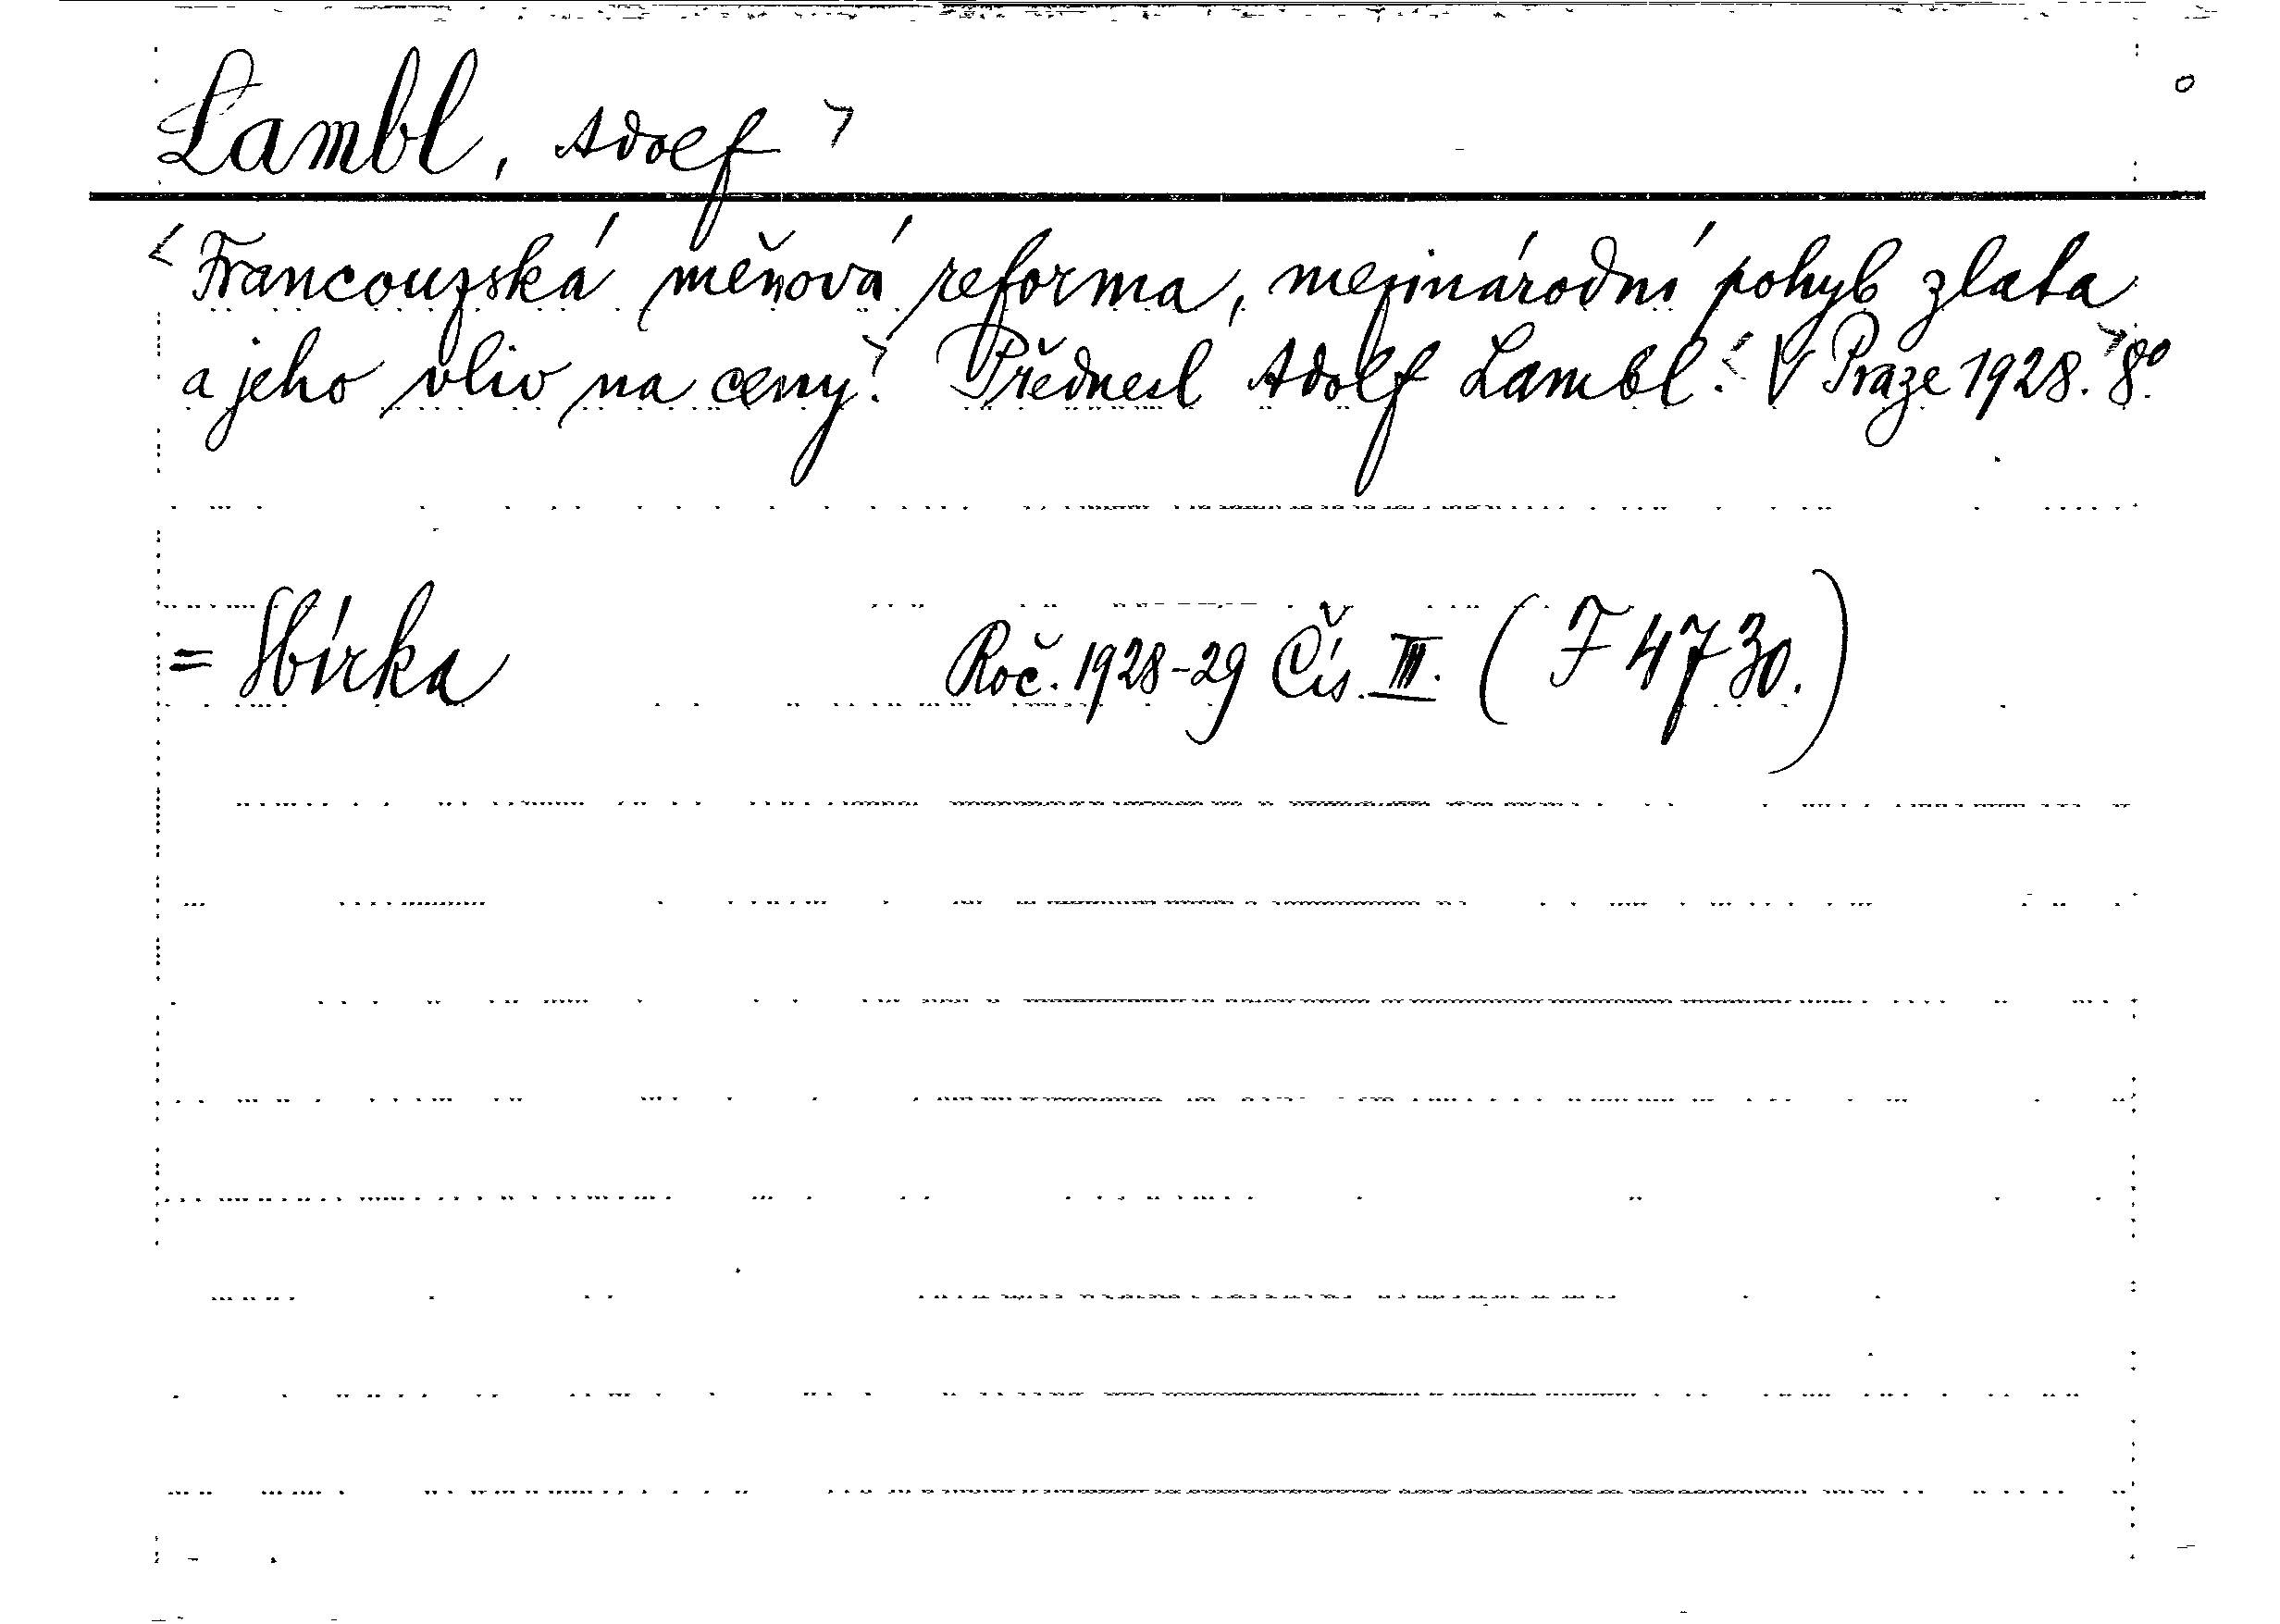 Lambl, Adolf >
< Francouzská měnová reforma, mezinárodní pohyb zlata
a jeho vliv na ceny. > Přednesl Adolf Lambl. < V Praze 1928. > 8°.
= Sbírka Roč. 1928-29 Čís. III. (F 4730.)